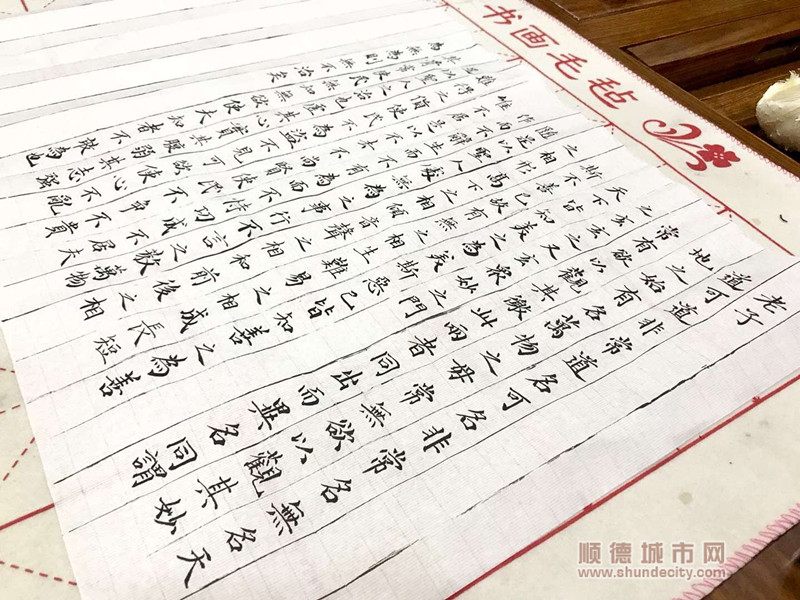 书画毛毡
老子
道可道非常道名可名非常名無名天
地之始有名萬物之母常無欲以觀其妙
常有欲以觀其徼此兩者同出而異名同謂
之玄玄之又玄眾妙之門
天下皆知美之為美斯惡已皆知善之為善
斯不善已故有無相生難易相成長短
相形高下相傾音聲相和前後之相
隨是以聖人處無為之事行不言之教萬物
作而不辭生而不有為而不恃功成不居夫
唯不居是以不去不尚賢使民不爭不貴
難得之貨使民不為盜不見可欲使心不亂
是以聖人之治也虛其心實其腹弱其志強
其骨常使民無知無欲使夫知者不敢為也
為無為則無不治矣
顺德城市网
www.shundecity.com